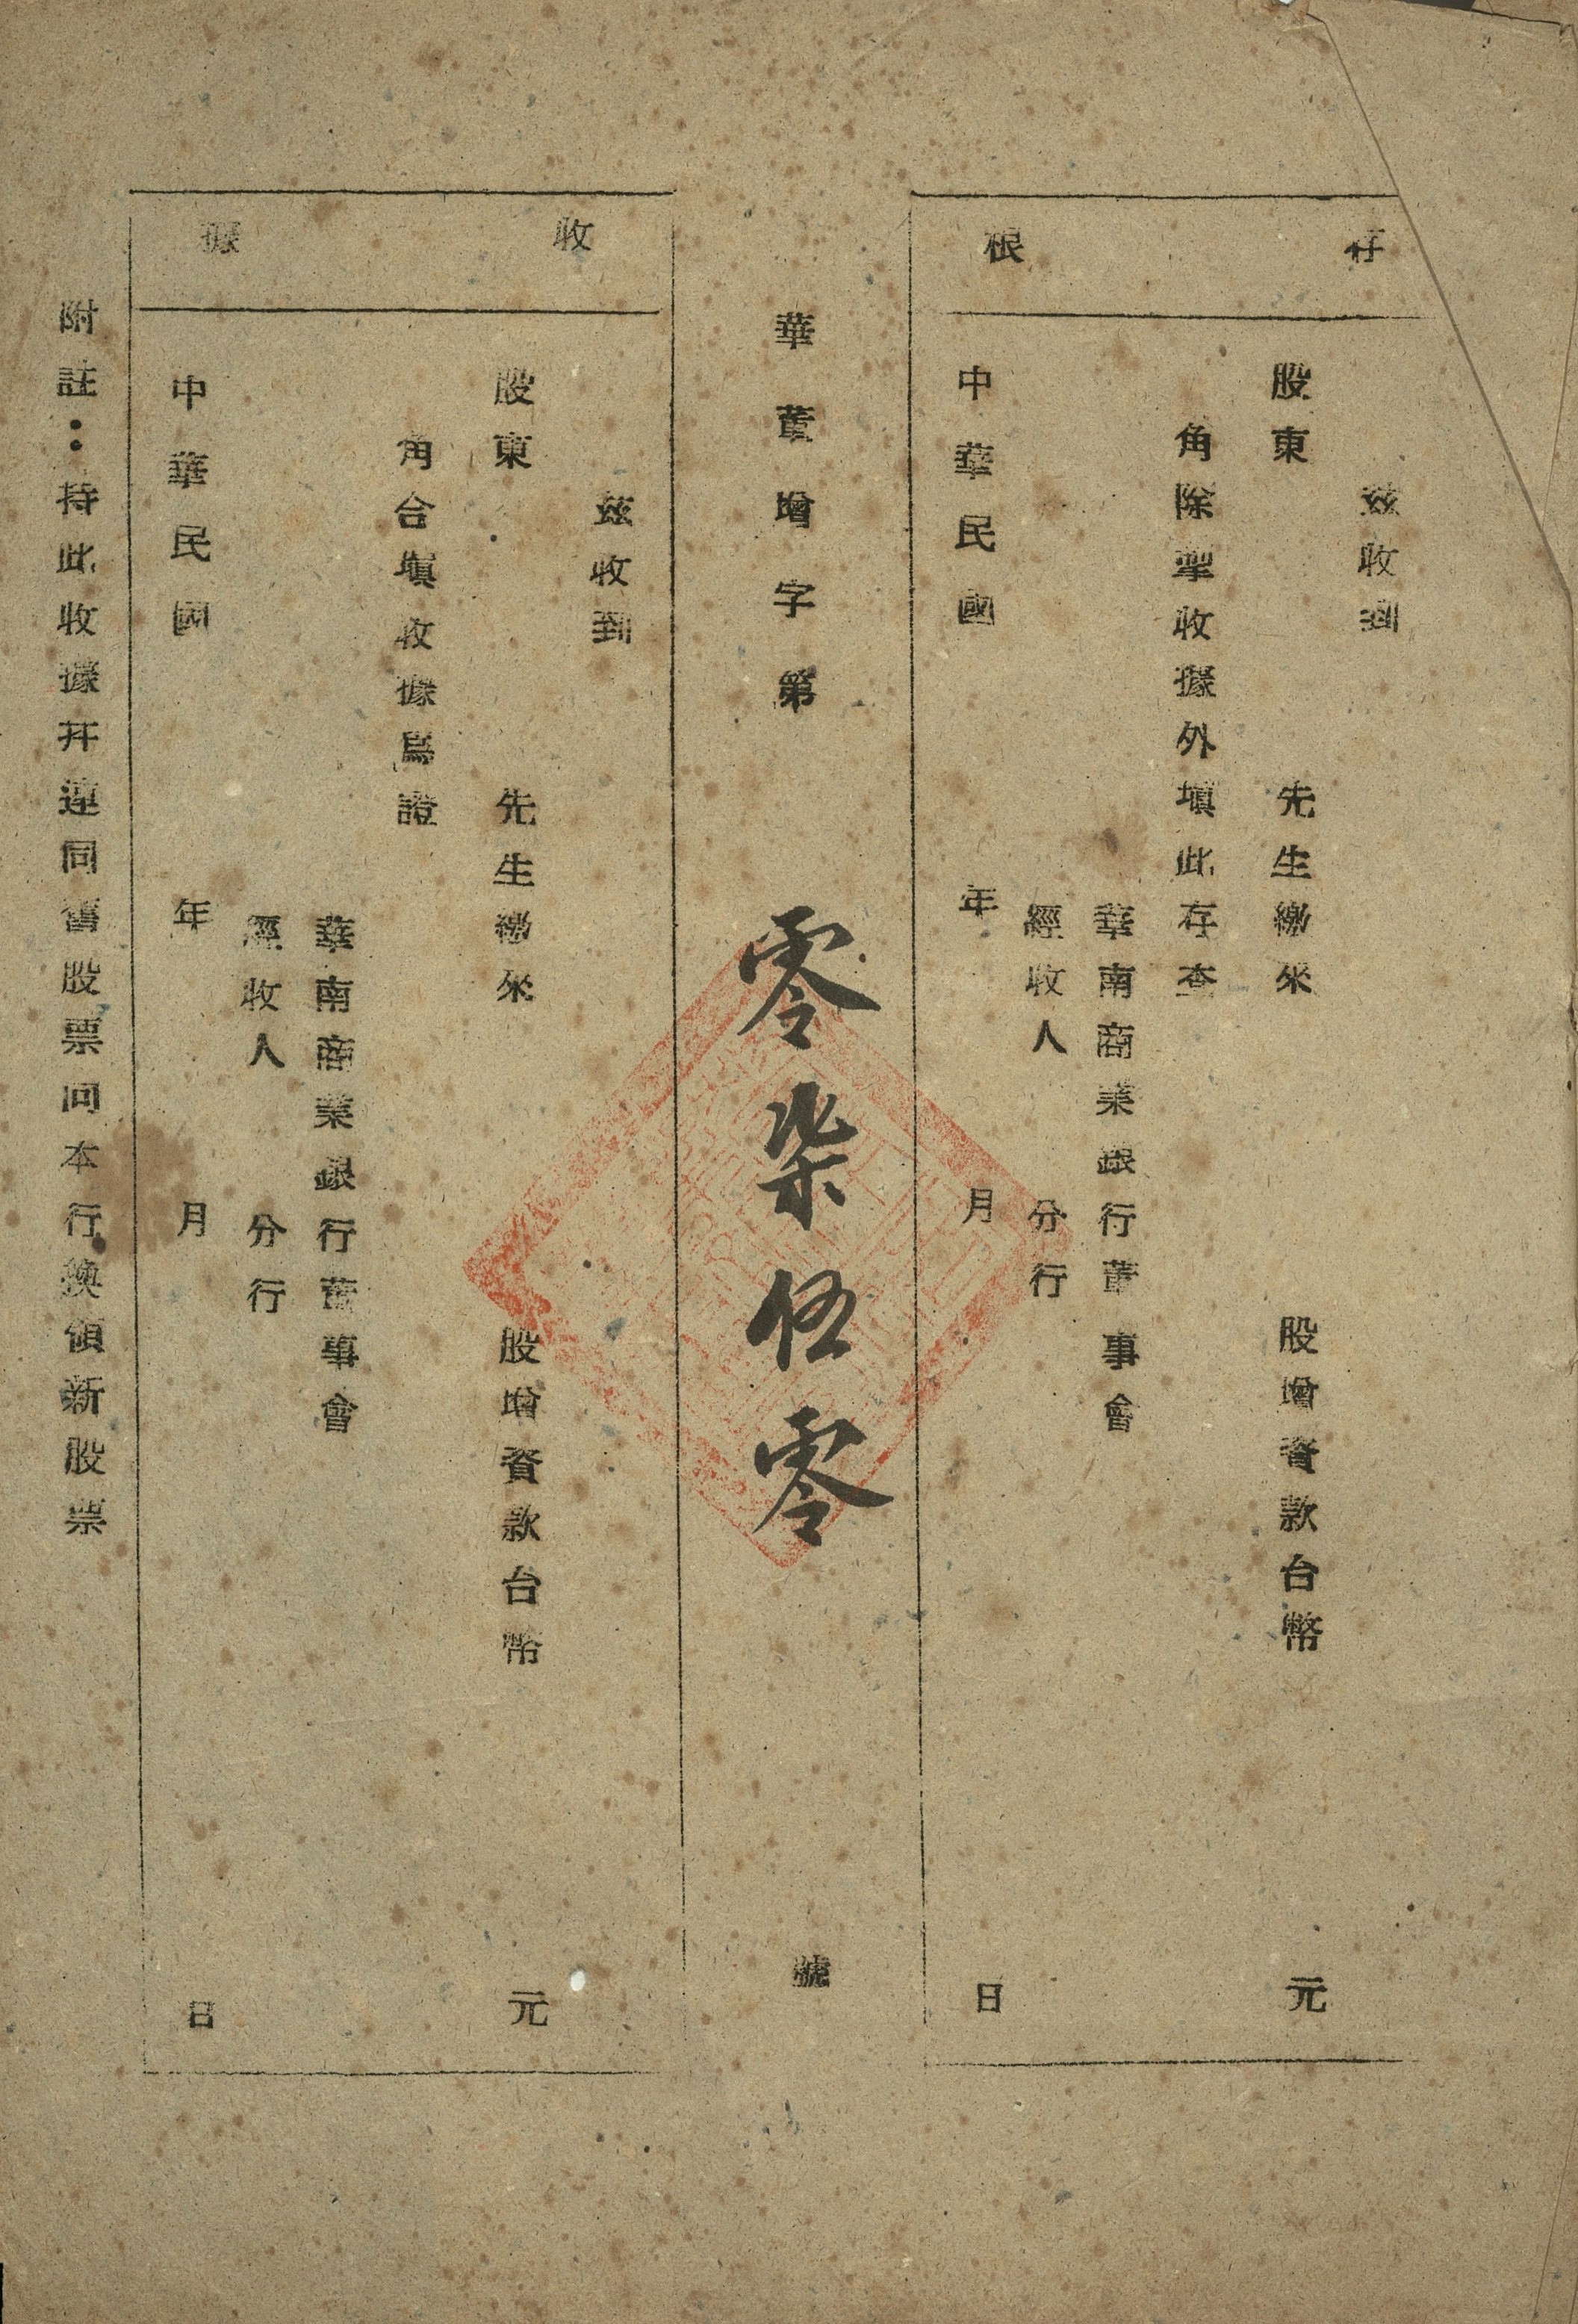 存根
茲收到
股東 先生繳來 股增資款台幣 元
角除掣收據外填此存查
華南商業銀行董事會
經收人 分行
中華民國 年 月 日
華董增字第 零柒伍零 號
收據
茲收到
股東 先生繳來 股增資款台幣 元
角合塡收據爲證
華南商業銀行董事會
經收人 分行
中華民國 年 月 日
附註：持此收據幷連同舊股票向本行換領新股票